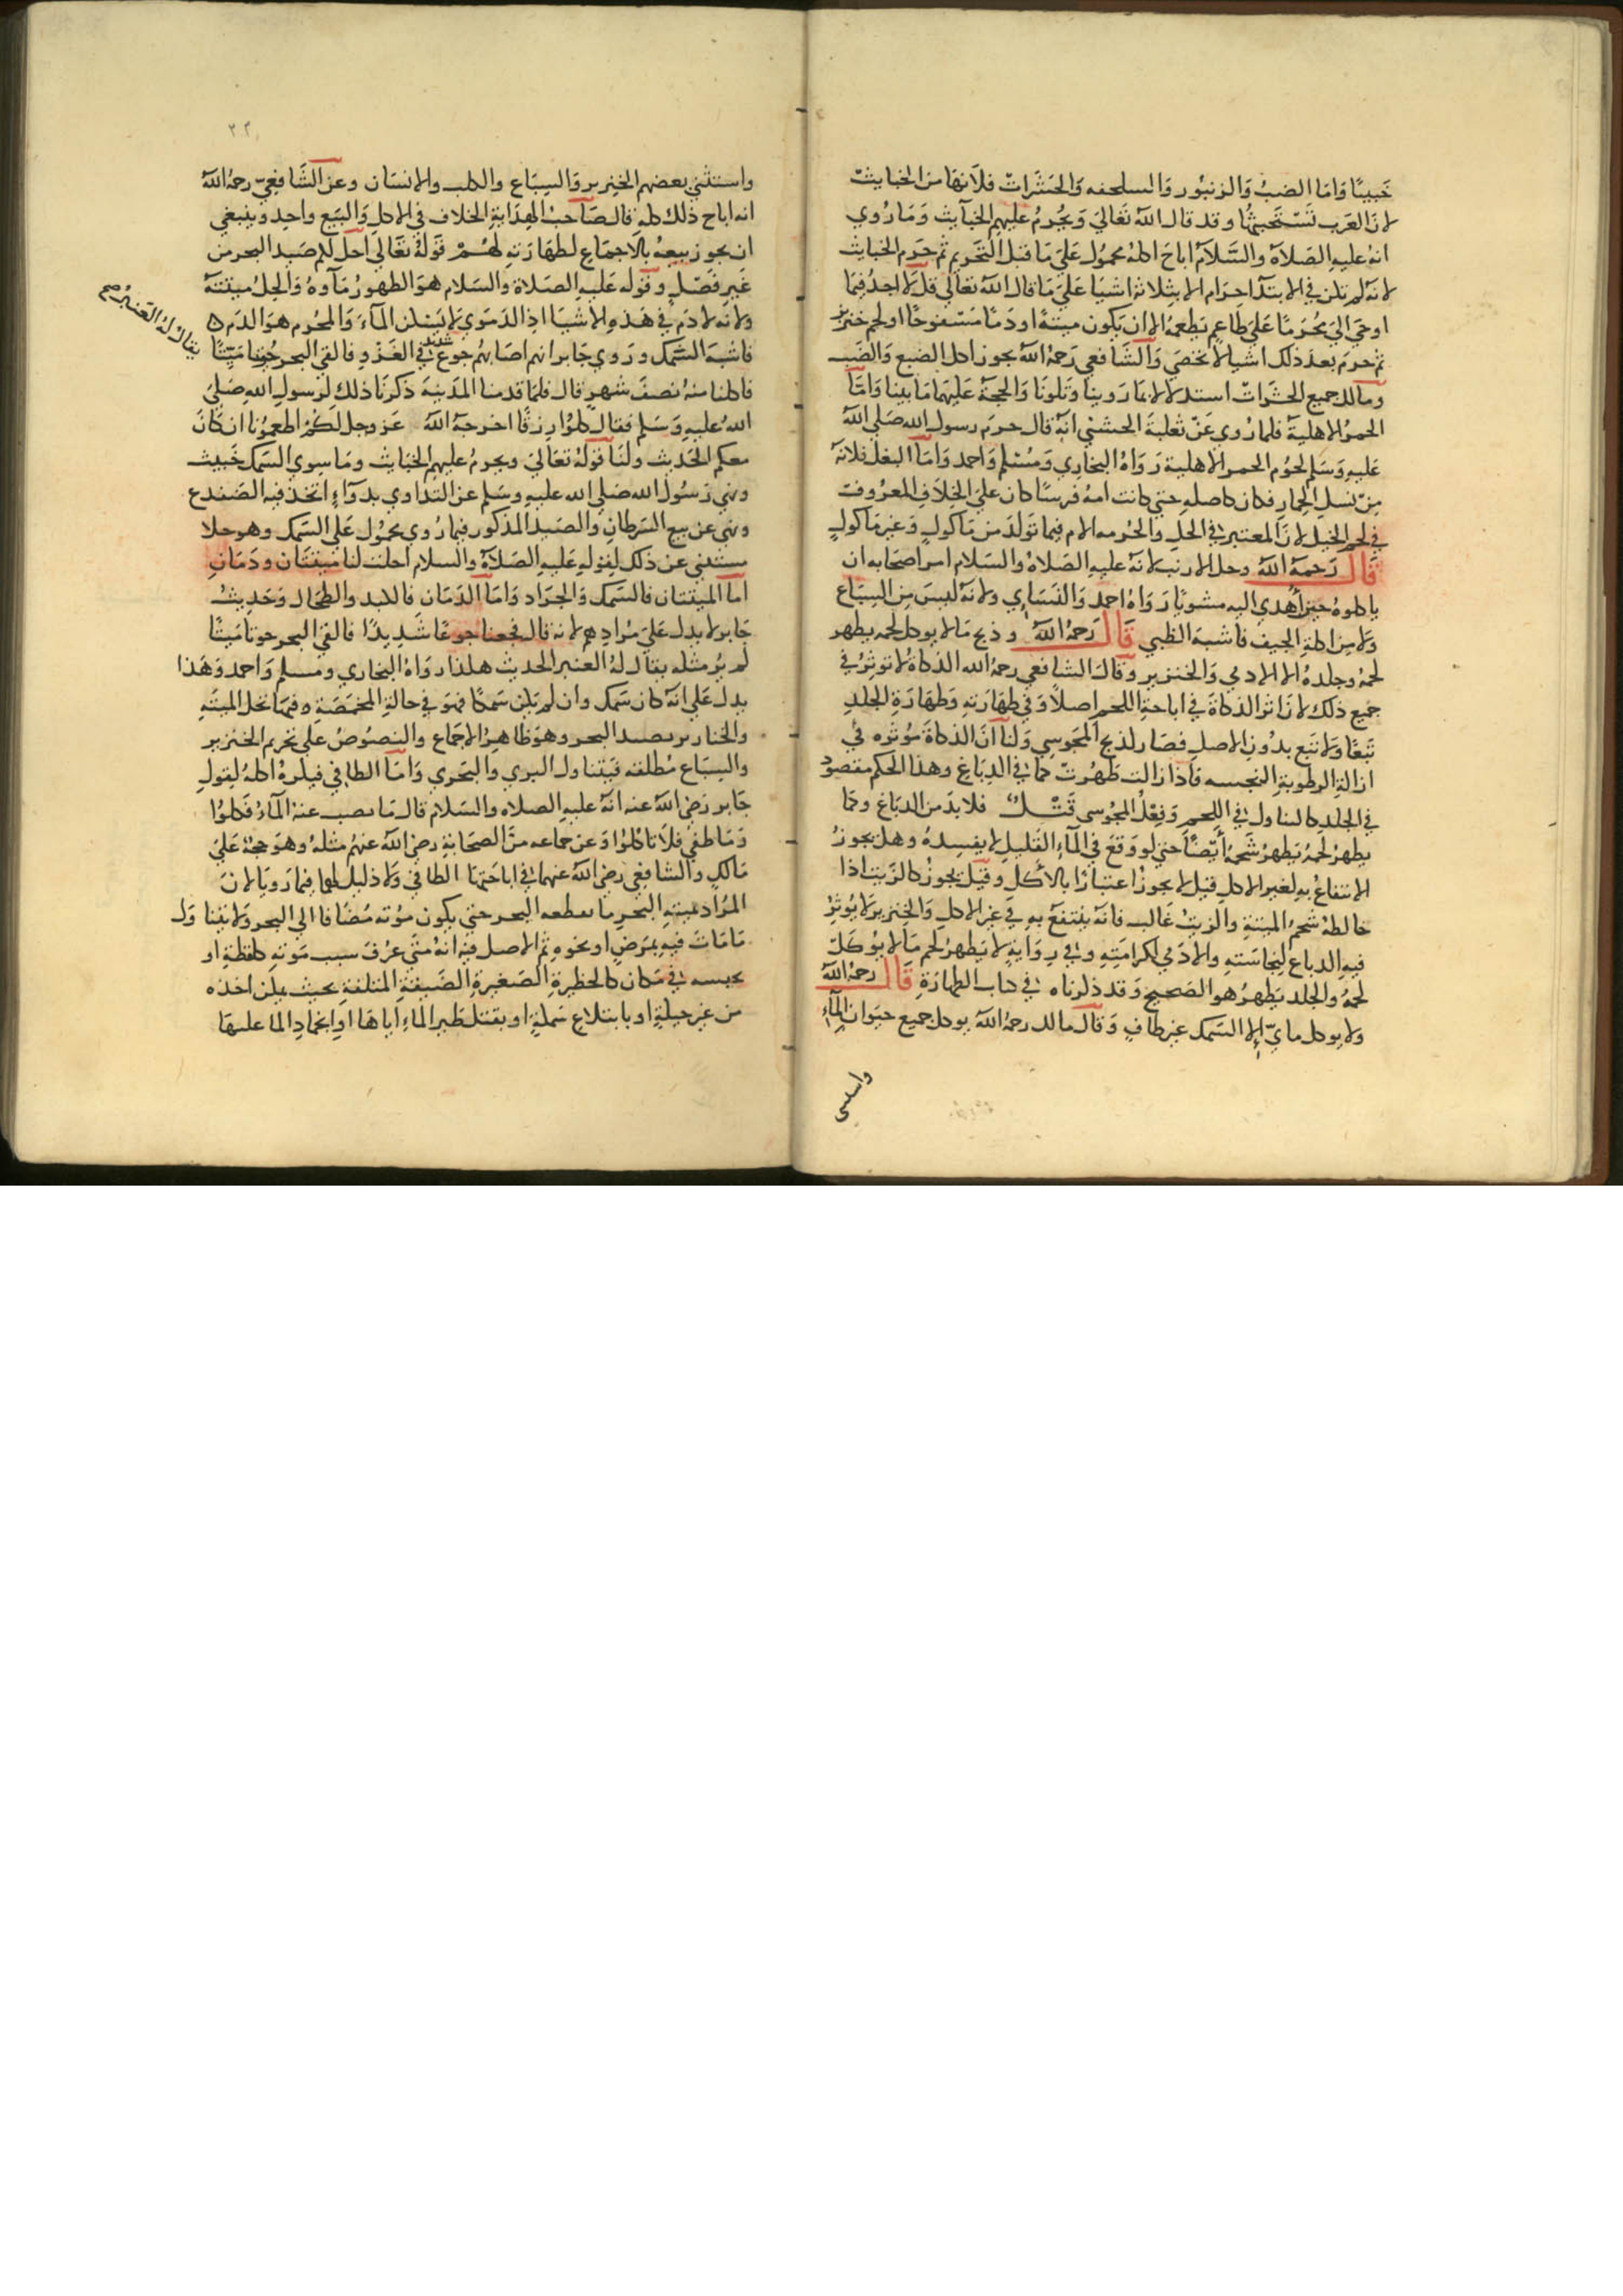 خبيثا واما الضب والزنبور والسلحفه والحشرات فلانها من الخبايث
لان العرب تستخبثها وقد قال الله تعالي ويحرم عليهم الخبآيث وما روي
انه عليه الصلاة والسلام اباح اكله محمول علي ما قبل التحريم ثم حرم الخبايث
لانه لم تكن في الابتدآ حرام الا بثلاثة اشيا علي ما قال الله تعالي قل لا اجد فيما
اوحي الي محرما علي طاعم يطعمه الا ان يكون ميتة او دما مسفوحا او لحم خنزير
ثم حرم بعد ذلك اشيا لا تحصي والشافعي رحمه الله يجوز اكل الضبع والضب
ومالك جميع الحشرات استدلالا بما روينا وتلونا والحجة عليهما ما بينا واما
الحمر الاهلية فلما روي عن ثعلبة الخشني انه قال حرم رسول الله صلي الله
عليه وسلم لحوم الحمر الاهلية رواه البخاري ومسلم واحمد واما البغل فلانه
من نسل الحمار فكان كاصله حتي كانت امه فرسا كان علي الخلاف المعروف
في لحم الخيل لان المعتبر في الحل والحرمه الام فيما تولد من ماكول وغير ماكول
قال رحمه الله وحل الارنب لانه عليه الصلاة والسلام امر اصحابه ان
ياكلوه حين اهدي اليه مشويا رواه احمد والنساي ولانه ليس من السباع
ولا من اكلة الجيف فاشبه الظبي قال رحمه الله وذبح ما لا يوكل لحمه يطهر
لحمه وجلده الا الادمي والخنزير وقال الشافعي رحمه الله الذكاة لا توثر في
جميع ذلك لان اثر الذكاة في اباحة اللحم اصلا وفي طهارته وطهارة الجلد
تبعا ولا تبع بدون الاصل فصار لذبح المجوسي ولنا ان الذكاة موثره في
ازالة الرطوبة النجسه فاذا زالت طهرت كما في الدباغ وهذا الحكم مقصود
في الجلد كالتناول في اللحم وفعل المجوسي قتل فلا بد من الدباغ وكما
يطهر لحمه يطهر شحمه ايضا حتي لو وقع في المآء القليل لا يفسده وهل يجوز
الانتفاع به لغير الاكل قيل لا يجوز اعتبارا بالاكل وقيل يجوز كالزيت اذا
خالطه شحم الميتة والزيت غالب فانه ينتفع به في غير الاكل والخنزير لا يوثر
فيه الدباغ لنجاسته والادمي لكرامته وفي رواية لا يطهر لحم ما لا يوكل
لحمه والجلد يطهر هو الصحيح وقد ذكرناه في كتاب الطهارة قال رحمه الله
ولا يوكل مايّ إلا السمك غير طاف وقال مالك رحمه الله يوكل جميع حيوان المآء
واستثني
٢٢
واستثني بعضهم الخنزير والسباع والكلب والانسان وعن الشافعي رحمه الله
انه اباح ذلك كله قال صاحب الهداية الخلاف في الاكل والبيع واحد وينبغي
ان يجوز بيعه بالاجماع لطهارته لهم قوله تعالي احل لكم صيد البحر من
غير فصل وقوله عليه الصلاة والسلام هو الطهور مآوه والحل ميتته
ولانه لا دم في هذه الاشيا اذ الدموي لا يسكن المآء والمحرم هو الدم ٥
فاشبه السمك وروي جابر انهم اصابهم جوع شديد في الغزو فالقي البحر حوتا ميتا
يقال له العنبر صح
فاكلنا منه نصف شهر قال فلما قدمنا المدينة ذكرنا ذلك لرسول الله صلي
الله عليه وسلم فقال كلوا رزقا اخرجه الله عز وجل لكم اطعمونا ان كان
معكم الحديث ولنا قوله تعالي ويحرم عليهم الخبايث وما سوي السمك خبيث
ونهي رسول الله صلي الله عليه وسلم عن التداوي بدوآء اتخذ فيه الضفدع
ونهي عن بيع السرطان والصيد المذكور فيما روي محمول علي السمك وهو حلا
مستثني عن ذلك لقوله عليه الصلاة والسلام احلت لنا ميتتان ودمان
اما الميتتان فالسمك والجراد واما الدمان فالكبد والطحال وحديث
جابر لا يدل علي مرادهم لانه قال فجعنا جوعا شديدا فالقي البحر حوتا ميتا
لم ير مثله يقال له العنبر الحديث هكذا رواه البخاري ومسلم واحمد وهذا
يدل علي انه كان سمك وان لم يكن سمكا فهو في حالة المخمصة وفيها تحل الميتة
والخنازير بصيد البحر وهو ظاهر الاجماع والنصوص علي تحريم الخنزير
والسباع مطلقه فيتناول البري والبحري واما الطافي فيكره اكله لقول
جابر رضي الله عنه انه عليه الصلاه والسلام قال ما نصب عنه المآء فكلوا
وما طفي فلا تاكلوا وعن جماعه من الصحابة رضي الله عنهم مثله وهو حجة علي
مالك والشافعي رضي الله عنهما في اباحتهما الطافي ولا دليل لهما فيما رويا لان
المراد بميتة البحر ما يطعمه البحر حتي يكون موته مضافا الي البحر ولا يتناول
ما مات فيه بمرض او نحوه ثم الاصل فيه انه متي عرف سبب موته كلفظة او
بحبسه في مكان كالحظيرة الصغيرة الضيقة المتلفة بحيث يمكن اخذه
من غير حيلة او بابتلاع سمكة او بقتل طير الماء اياها او انجماد الما عليها